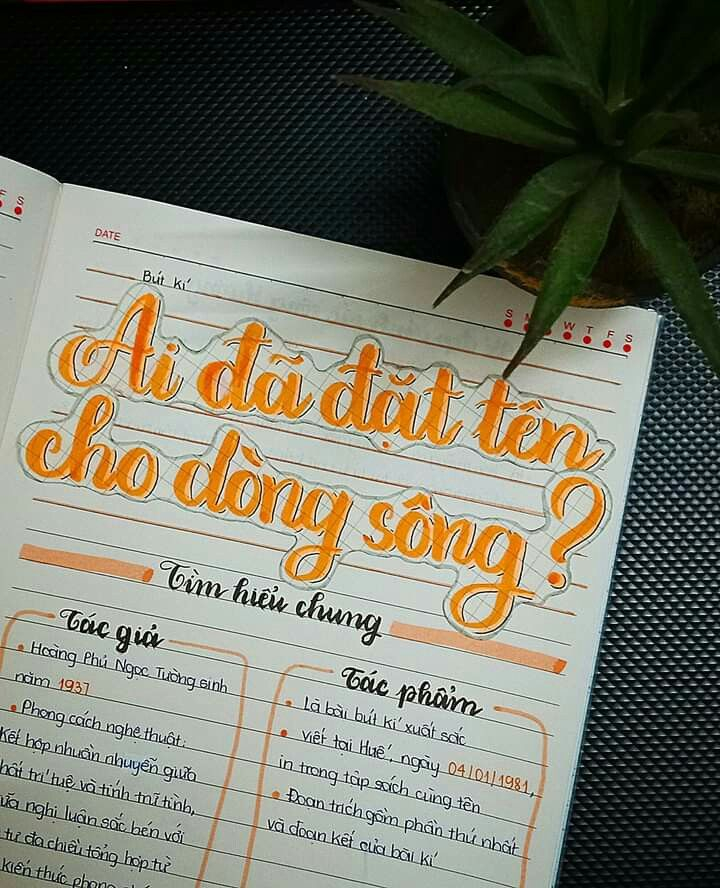 F S
DATE
S M W T F S
Bút kí
Ai đã đặt tên
cho dòng sông?
Tìm hiểu chung
Tác giả
• Hoàng Phủ Ngọc Tường sinh
năm 1937
• Phong cách nghệ thuật:
kết hợp nhuần nhuyễn giữa
chất trí tuệ và tính trữ tình,
giữa nghị luận sắc bén với
tư đa chiều tổng hợp từ
kiến thức phong
Tác phẩm
• Là bài bút kí xuất sắc
• viết tại Huế, ngày 04/01/1981,
in trong tập sách cùng tên
• Đoạn trích gồm phần thứ nhất
và đoạn kết của bài kí